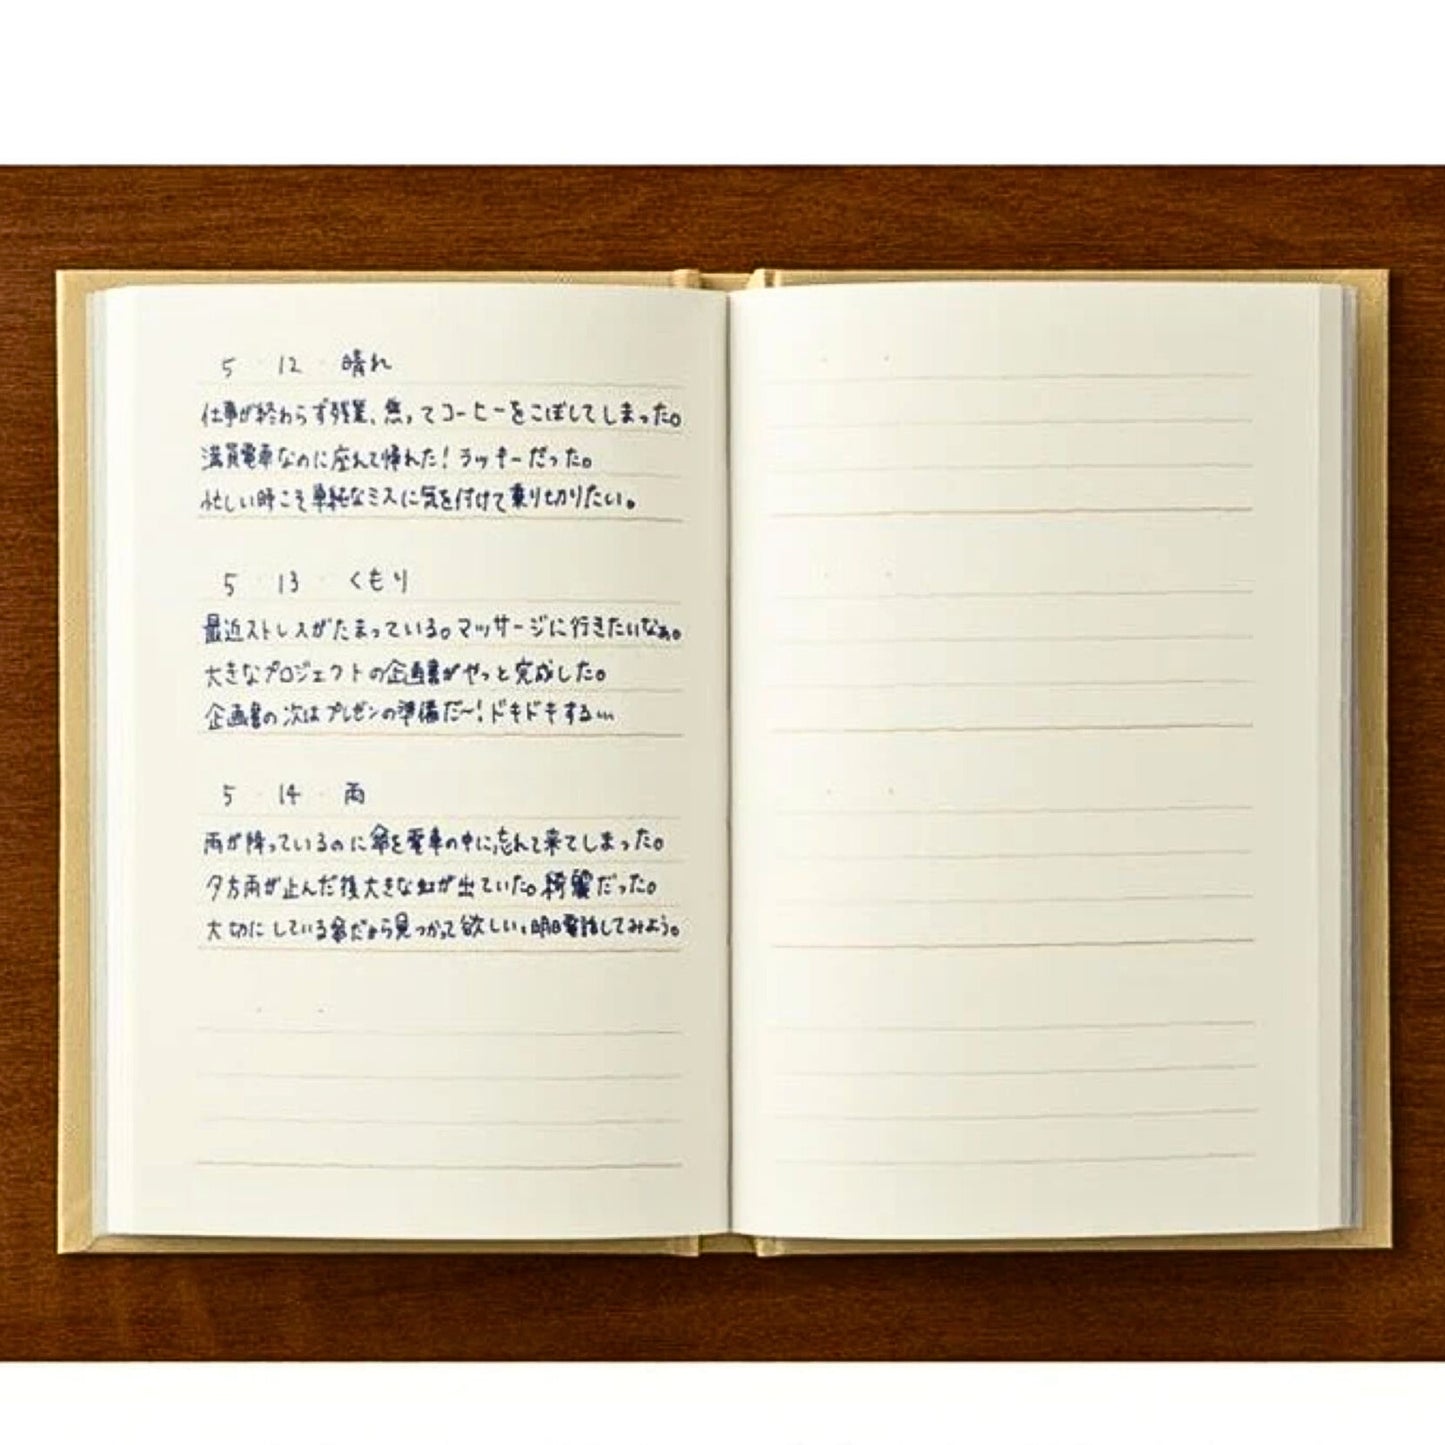 5 ・ 12 ・ 晴れ
仕事が終わらず残業、焦ってコーヒーをこぼしてしまった。
満員電車なのに座れて帰れた!ラッキーだった。
忙しい時こそ単純なミスに気を付けて乗り切りたい。
5 ・ 13 ・ くもり
最近ストレスがたまっている。マッサージに行きたいなぁ。
大きなプロジェクトの企画書がやっと完成した。
企画書の次はプレゼンの準備だ〜!ドキドキする…
5 ・ 14 ・ 雨
雨が降っているのに傘を電車の中に忘れて来てしまった。
夕方雨が止んだ後大きな虹が出ていた。綺麗だった。
大切にしている傘だから見つかって欲しい、明日電話してみよう。